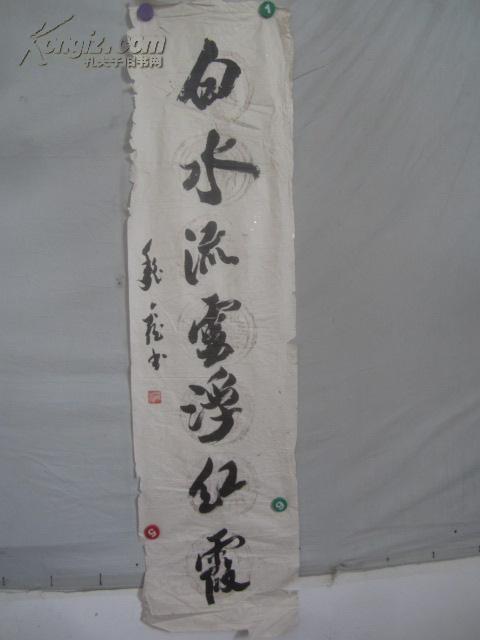 Kongfz.com
孔夫子旧书网
白水流雲浮红霞
书
1
6
5